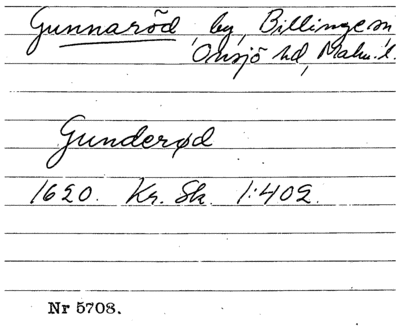 Gunnaröd, by, Billinge sn,
Onsjö hd, Malm. l.
Gunderød
1620. Kr. Sk. 1:402.
Nr 5708.